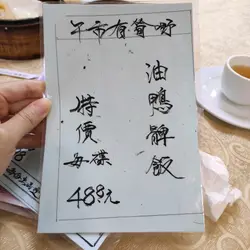 午市有賞呀
油鴨髀飯
特價
每碟
48元